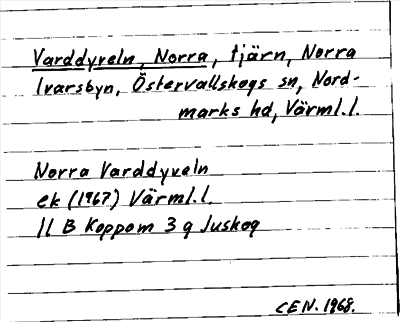 Varddyveln, Norra, tjärn, Norra
Ivarsbyn, Östervallskogs sn, Nord-
marks hd, Värml.l.
Norra Varddyveln
ek (1967) Värml.l.
11 B Koppom 3 g Juskog
CEN. 1968.